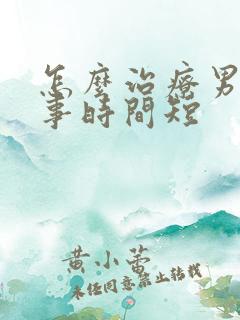 怎麼治療男
事時間短
黄小蕾
未经同意禁止转载